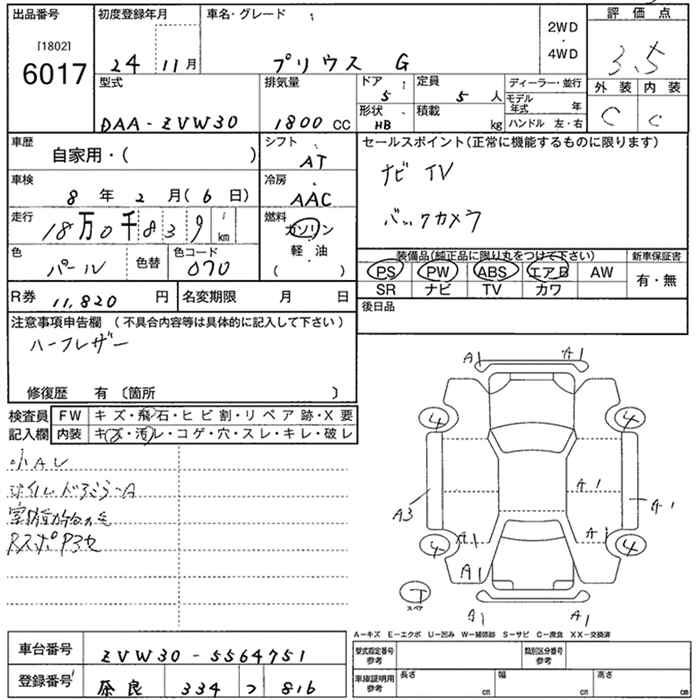 出品番号 初度登録年月 車名・グレード 評価点
[1802]
6017 24 11月 プリウス G 2WD・4WD 3.5
型式 排気量 ドア 定員 ディーラー・並行 外装 内装
DAA-ZVW30 1800 CC 5 5 人 モデル年式 年 C C
形状 HB 積載 kg ハンドル 左・右
車歴 自家用・( ) シフト AT セールスポイント(正常に機能するものに限ります)
車検 8 年 2 月(6 日) 冷房 AAC ナビ TV
走行 18万0千839 km 燃料 ガソリン バックカメラ
軽・油
( )
色 パール 色替 色コード 070
装備品(純正品に限り丸をつけて下さい) 新車保証書
PS PW ABS エアB AW 有・無
SR ナビ TV カワ
R券 11,820 円 名変期限 月 日 後日品
注意事項申告欄 (不具合内容等は具体的に記入して下さい)
ハーフレザー
修復歴 有 〔箇所 〕
検査員 FW キズ・飛石・ヒビ割・リペア跡・X要
記入欄 内装 キズ・汚レ・コゲ・穴・スレ・キレ・破レ
小AU
A1 A1
4 4
A1
A3 A1
A1 A1
4 4
A1
T
スペア
A1 A1
A-キズ E-エクボ U-凹み W-補修跡 S-サビ C-腐食 XX-交換済
車台番号 ZVW30-5564751
型式指定番号 参考 類別区分番号 参考
登録番号 奈良 334 つ 816
車庫証明用 参考 長さ cm 幅 cm 高さ cm